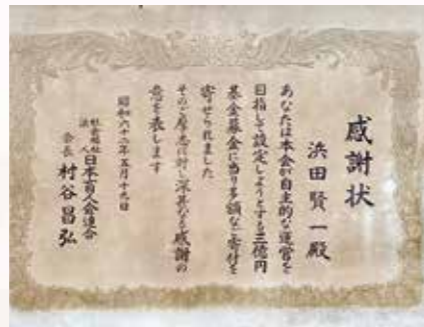 感謝状
浜田賢一殿
あなたは本会が自主的な運営を
目指して設定しようとする三億円
基金募金に当り多額なご寄付を
寄せられました
そのご厚志に対し深甚なる感謝の
意を表します
昭和六十二年五月十九日
社会福祉法人日本盲人会連合
会長村谷昌弘